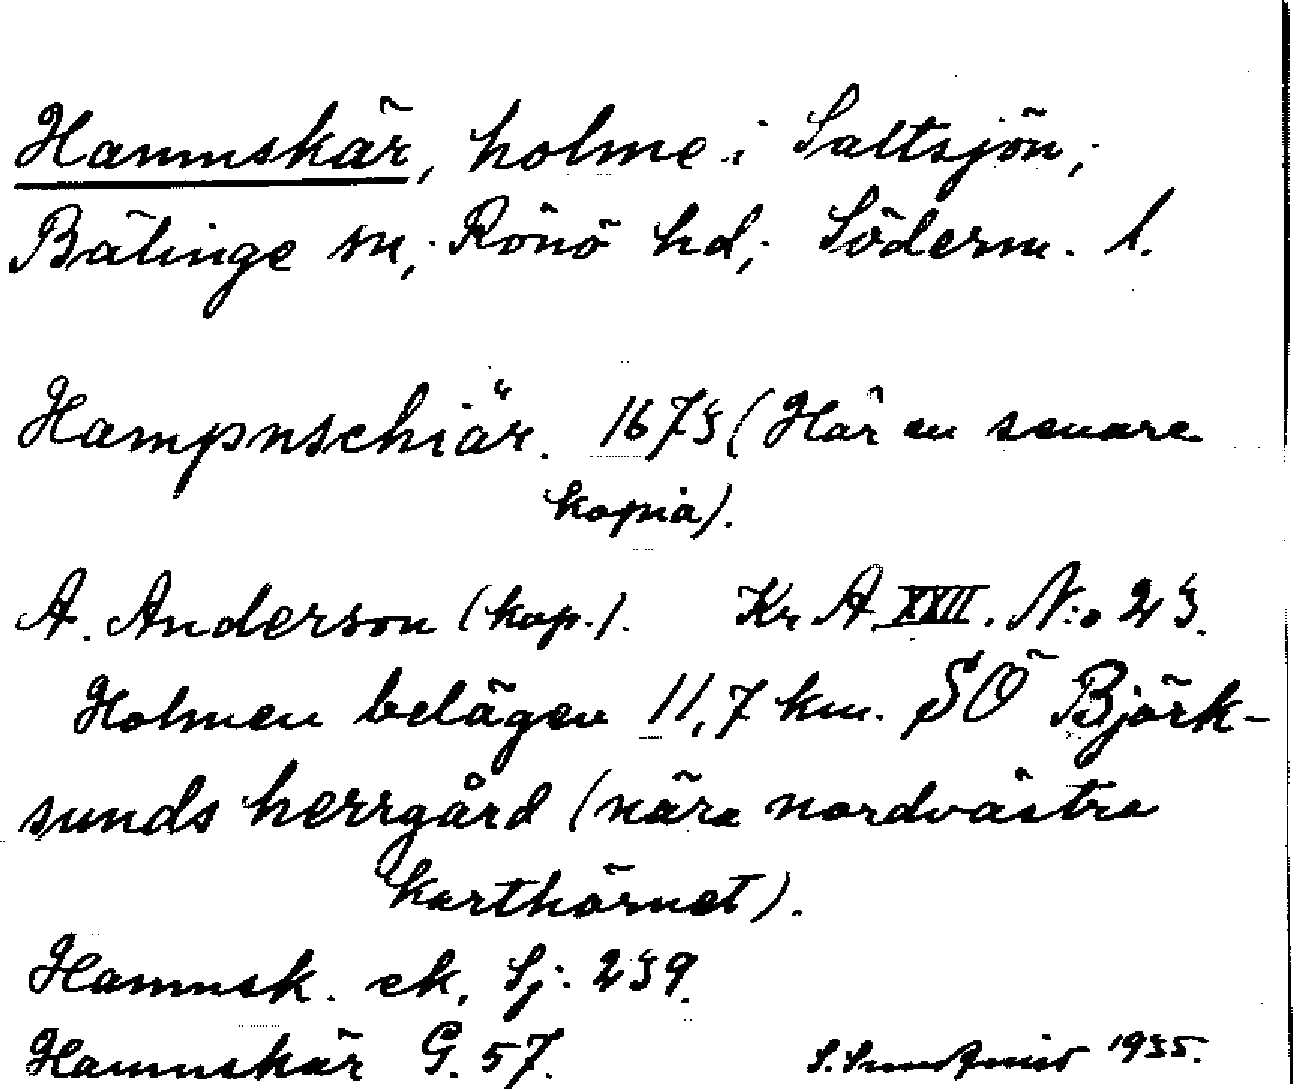 Hamnskär, holme i Saltsjön,
Bälinge sn, Rönö hd, Söderm. l.
Hampnschiär. 1673 (Här en senare
kopia).
A. Anderson (kop.). Kr A XXII. N:o 23.
Holmen belägen 11,7 km. SÖ Björk-
sunds herrgård (nära nordvästra
karthörnet).
Hamnsk. ek. Sj. 239.
Hamnskär G. 57.
S. 1935.